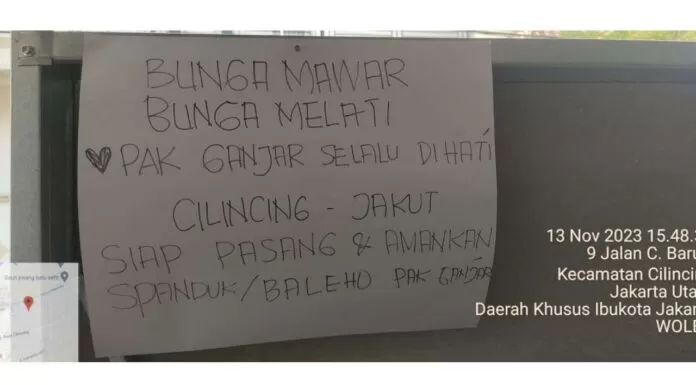 BUNGA MAWAR
BUNGA MELATI
PAK GANJAR SELALU DI HATI
CILINCING - JAKUT
SIAP PASANG & AMANKAN
SPANDUK/BALEHO PAK GANJAR
13 Nov 2023 15.48.3
9 Jalan C. Baru
Kecamatan Cilincin
Jakarta Uta
Daerah Khusus Ibukota Jakar
WOLE